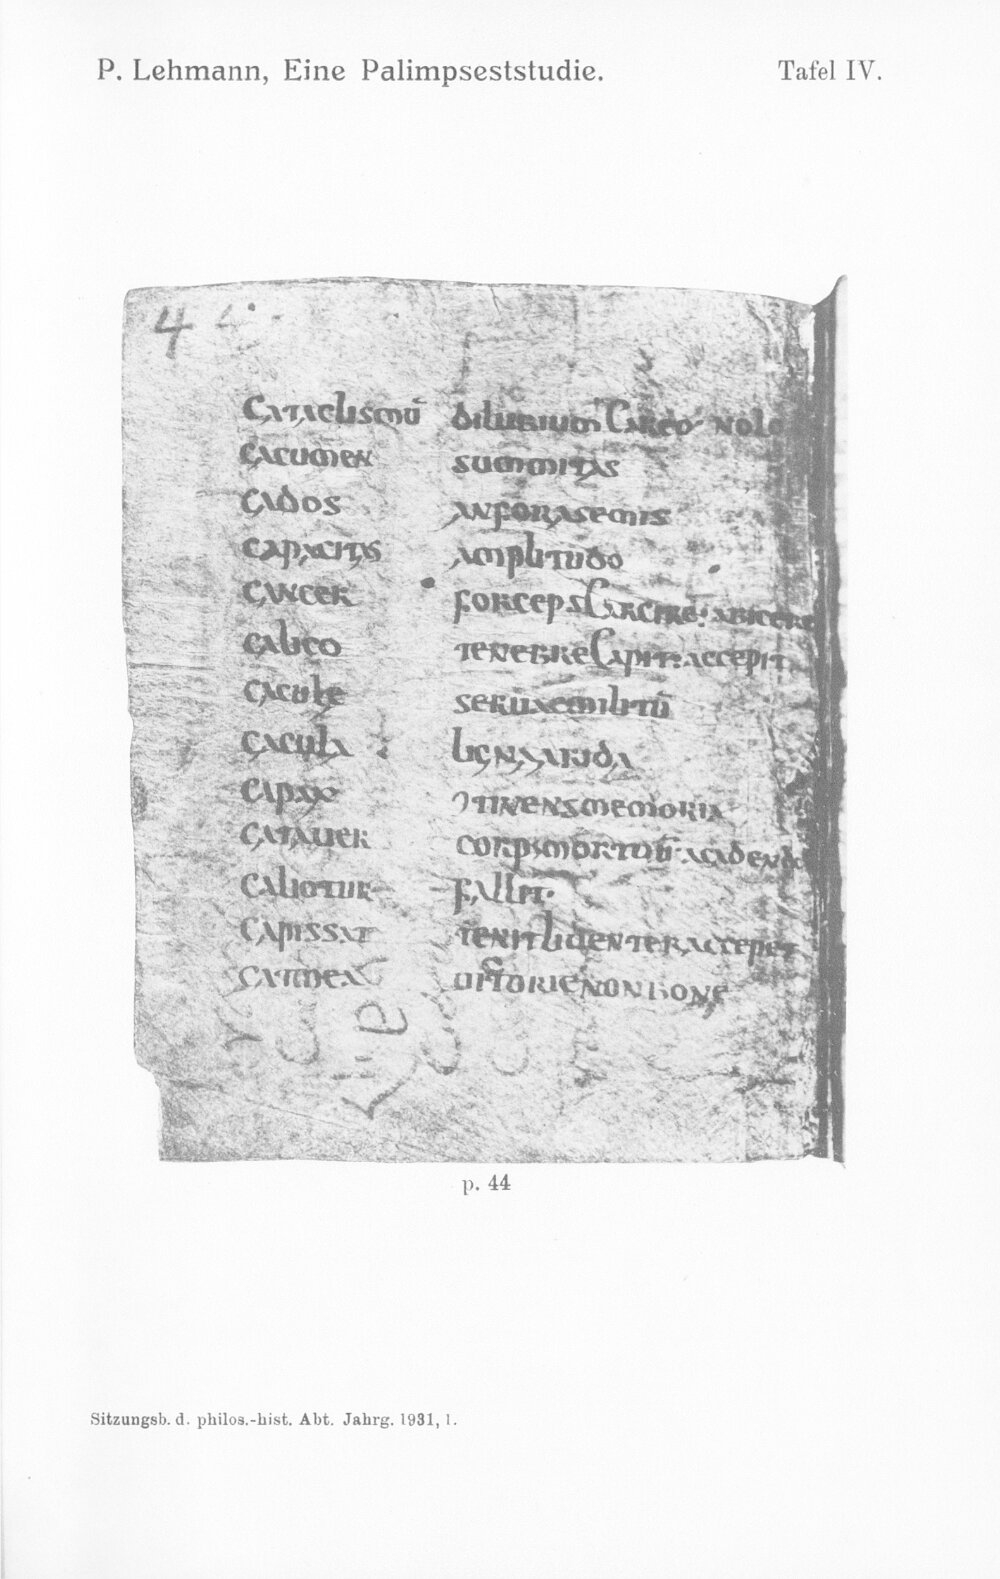 P. Lehmann, Eine Palimpseststudie. Tafel IV.
44
Cataclismū diluuium Careo nolo
cacumen summitas
cados anforasemis
capacitas amplitudo
cancer forceps Carcire: abicere
caligo tenebre Capit: accepit
cacule seruaemilitū
cacula ligna arida
capax ↄtinensmemoria
catauer corpsmortuū acadendo
caliotur fallit·
capissat tenit libenter accepet
uictorie non bone
p. 44
Sitzungsb. d. philos.-hist. Abt. Jahrg. 1931, 1.